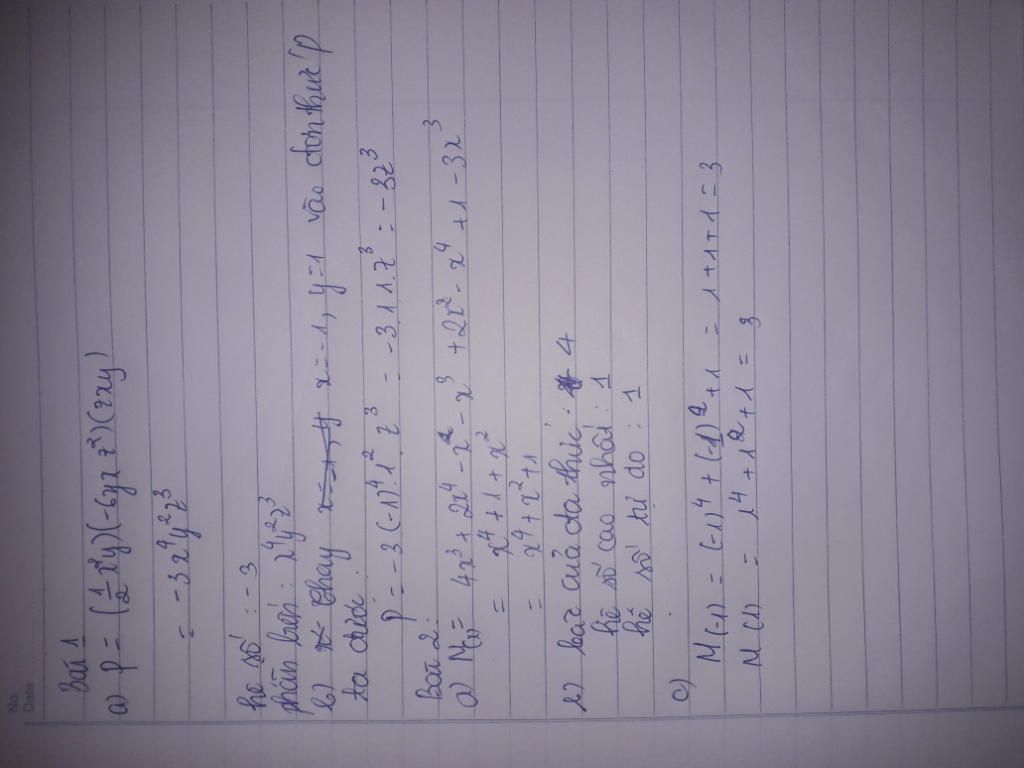 No.
Date
Bài 1
a) P = (1/2 x²y)(-6yz z²)(2xy)
= -3x⁴y²z³
hệ số : -3
phần biến : x⁴y²z³
b) Thay x = -1, y = 1 vào đơn thức P
ta được :
P = -3(-1)⁴.1² z³ = -3.1.1.z³ = -3z³
Bài 2:
a) M(x) = 4x³ + 2x⁴ - x² - x³ + 2x² - x⁴ + 1 - 3x³
= x⁴ + 1 + x²
= x⁴ + x² + 1
b) bậc của đa thức : 4
hệ số cao nhất : 1
hệ số tự do : 1
c)
M(-1) = (-1)⁴ + (-1)² + 1 = 1 + 1 + 1 = 3
M(1) = 1⁴ + 1² + 1 = 3